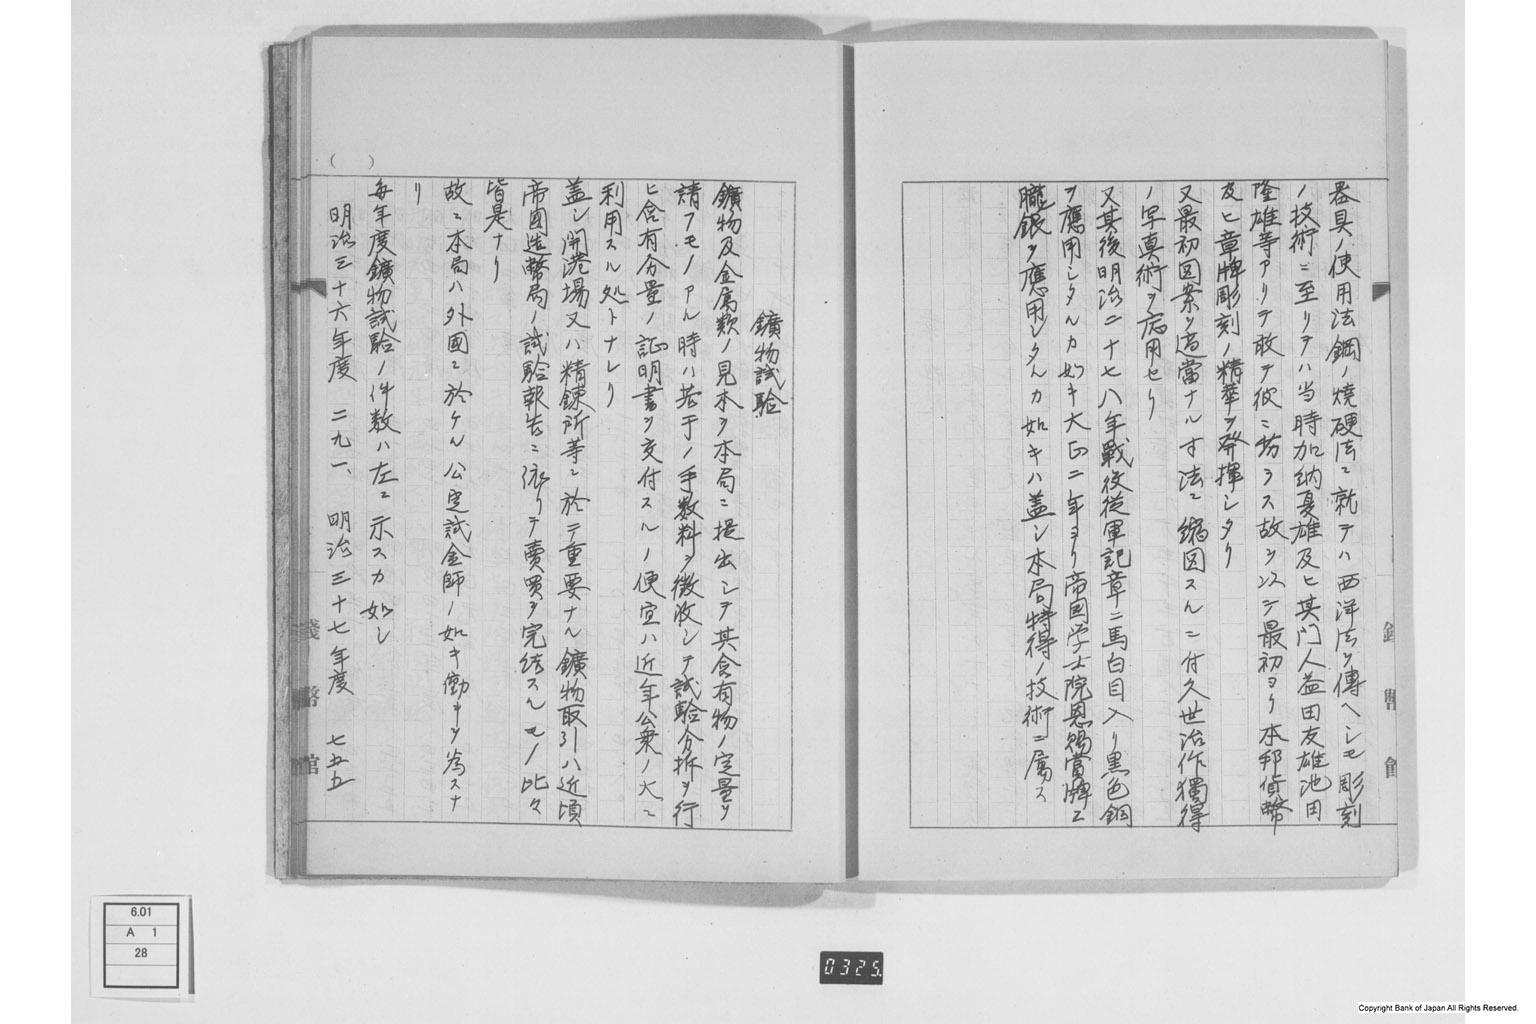 器具ノ使用法鋼ノ焼硬法ニ就テハ西洋法ヲ傳ヘシモ彫刻
ノ技術ニ至リテハ当時加納夏雄及ヒ其门人益田友雄池田
隆雄等アリテ敢テ彼ニ劣ラス故ヲ以テ最初ヨリ本邦貨幣
及ヒ章牌彫刻ノ精華ヲ発揮シタリ
又最初図案ヲ適當ナル寸法ニ縮図スルニ付久世治作獨得
ノ写真術ヲ応用セリ
又其後明治二十七八年戰役従軍記章ニ馬白目入リ黒色銅
ヲ應用シタルカ如キ大正二年ヨリ帝国学士院恩賜賞牌ニ
朧銀ヲ應用シタルカ如キハ盖シ本局特得ノ技術ニ属ス
鑛物試験
鑛物及金属類ノ見本ヲ本局ニ提出シテ其含有物ノ定量ヲ
請フモノアル時ハ若干ノ手数料ヲ徴收シテ試験分拆ヲ行
ヒ含有分量ノ証明書ヲ交付スルノ便宜ハ近年公衆ノ大ニ
利用スル処トナレリ
盖シ開港場又ハ精錬所等ニ於テ重要ナル鑛物取引ハ近頃
帝國造幣局ノ試験報告ニ依リテ賣買ヲ完結スルモノ比々
皆是ナリ
故ニ本局ハ外國ニ於ケル公定試金師ノ如キ働キヲ為スナ
リ
每年度鑛物試験ノ件数ハ左ニ示スカ如シ
明治三十六年度 二九一、 明治三十七年度 七五五
( )
銭幣館
6.01
A 1
28
0325.
Copyright Bank of Japan All Rights Reserved.